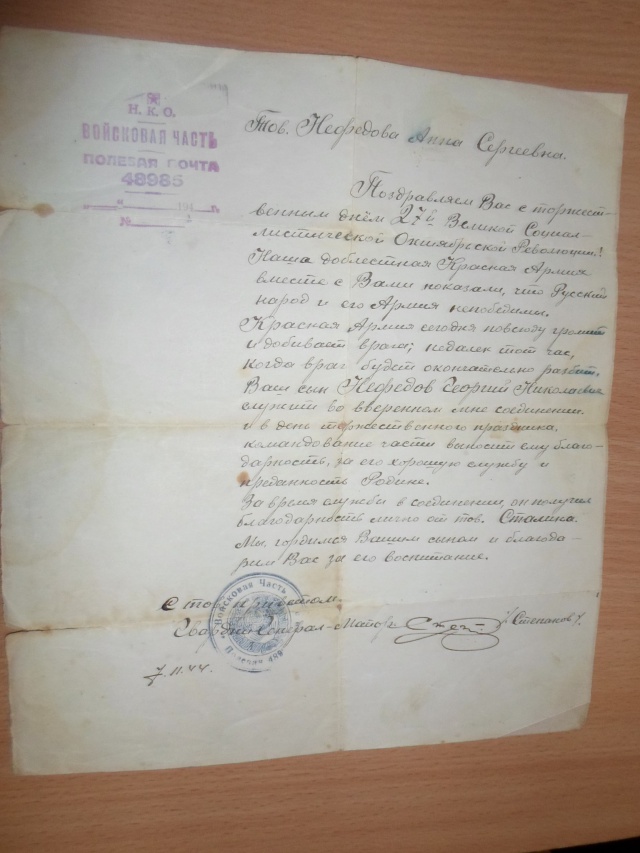 Н.К.О.
ВОЙСКОВАЯ ЧАСТЬ
ПОЛЕВАЯ ПОЧТА
48985
"  " 194 г.
№
Тов. Нефедова Анна Сергеевна.
Поздравляем Вас с торжест-
венным днём 27й Великой Социал-
листической Октябрьской Революции!
Наша доблестная Красная Армия
вместе с Вами показали, что Русский
народ и его Армия непобедимы.
Красная Армия сегодня повсюду громит
и добивает врага; недалек тот час,
когда враг будет окончательно разбит.
Ваш сын Нефедов Георгий Николаевич
служит во вверенном мне соединении
и в день торжественного праздника,
командование части выносит ему благо-
дарность, за его хорошую службу и
преданность Родине.
За время службы в соединении, он получил
благодарность лично от тов. Сталина.
Мы, гордимся Вашим сыном и благода-
рим Вас за его воспитание.
С тов. приветом
Гвардии Генерал-Майор /Степанов/.
Войсковая Часть
7.11.44.